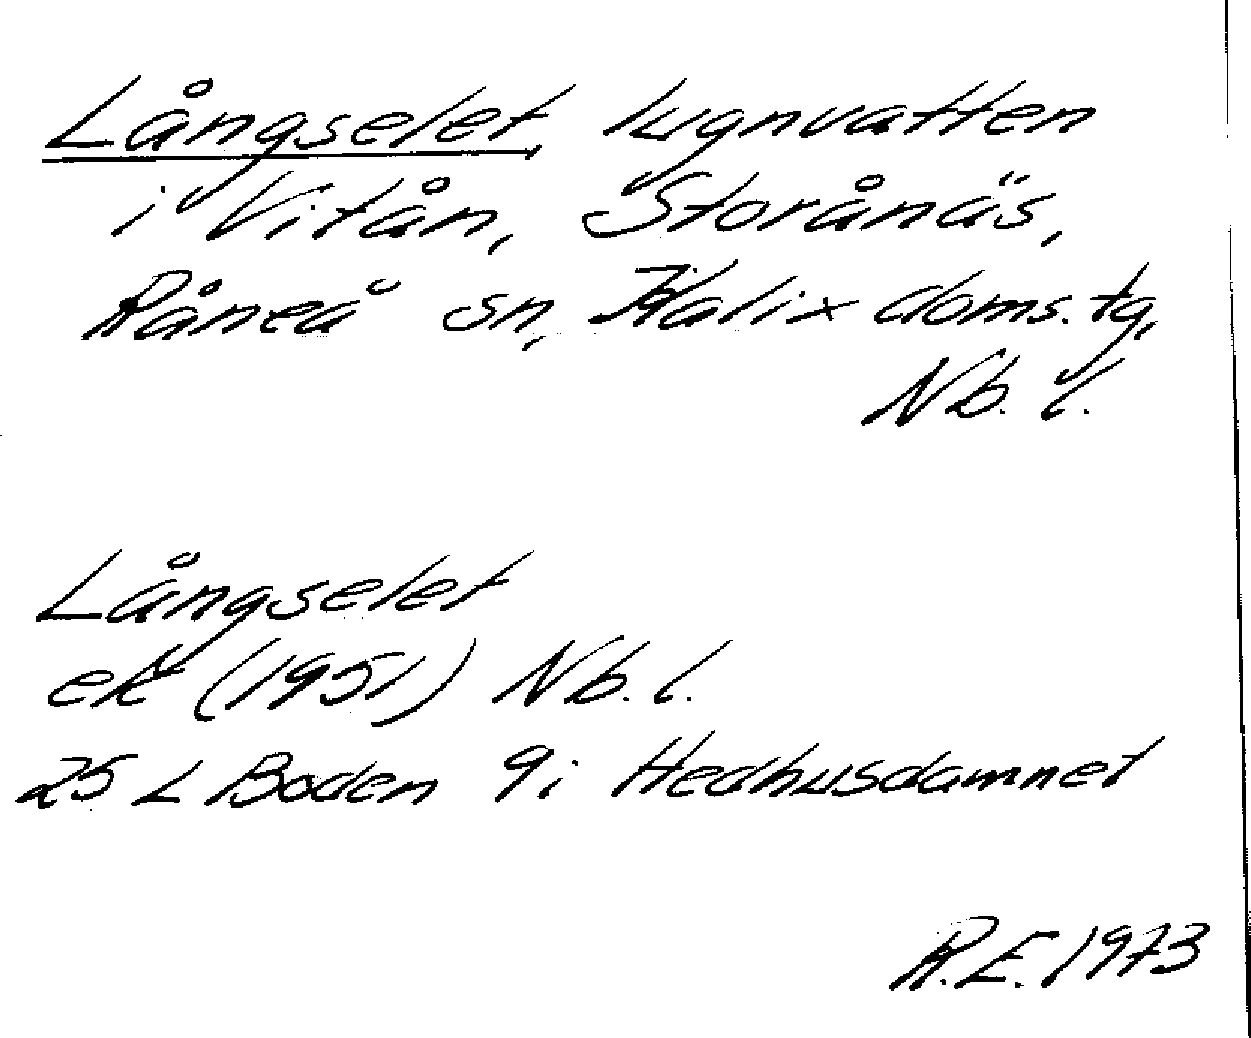 Långselet, lugnvatten
i Vitån, Storånäs,
Råneå sn, Kalix doms. tg,
Nb. l.
Långselet
ek (1951) Nb. l.
25 L Boden 9i Hedhusdamnet
R.E. 1973